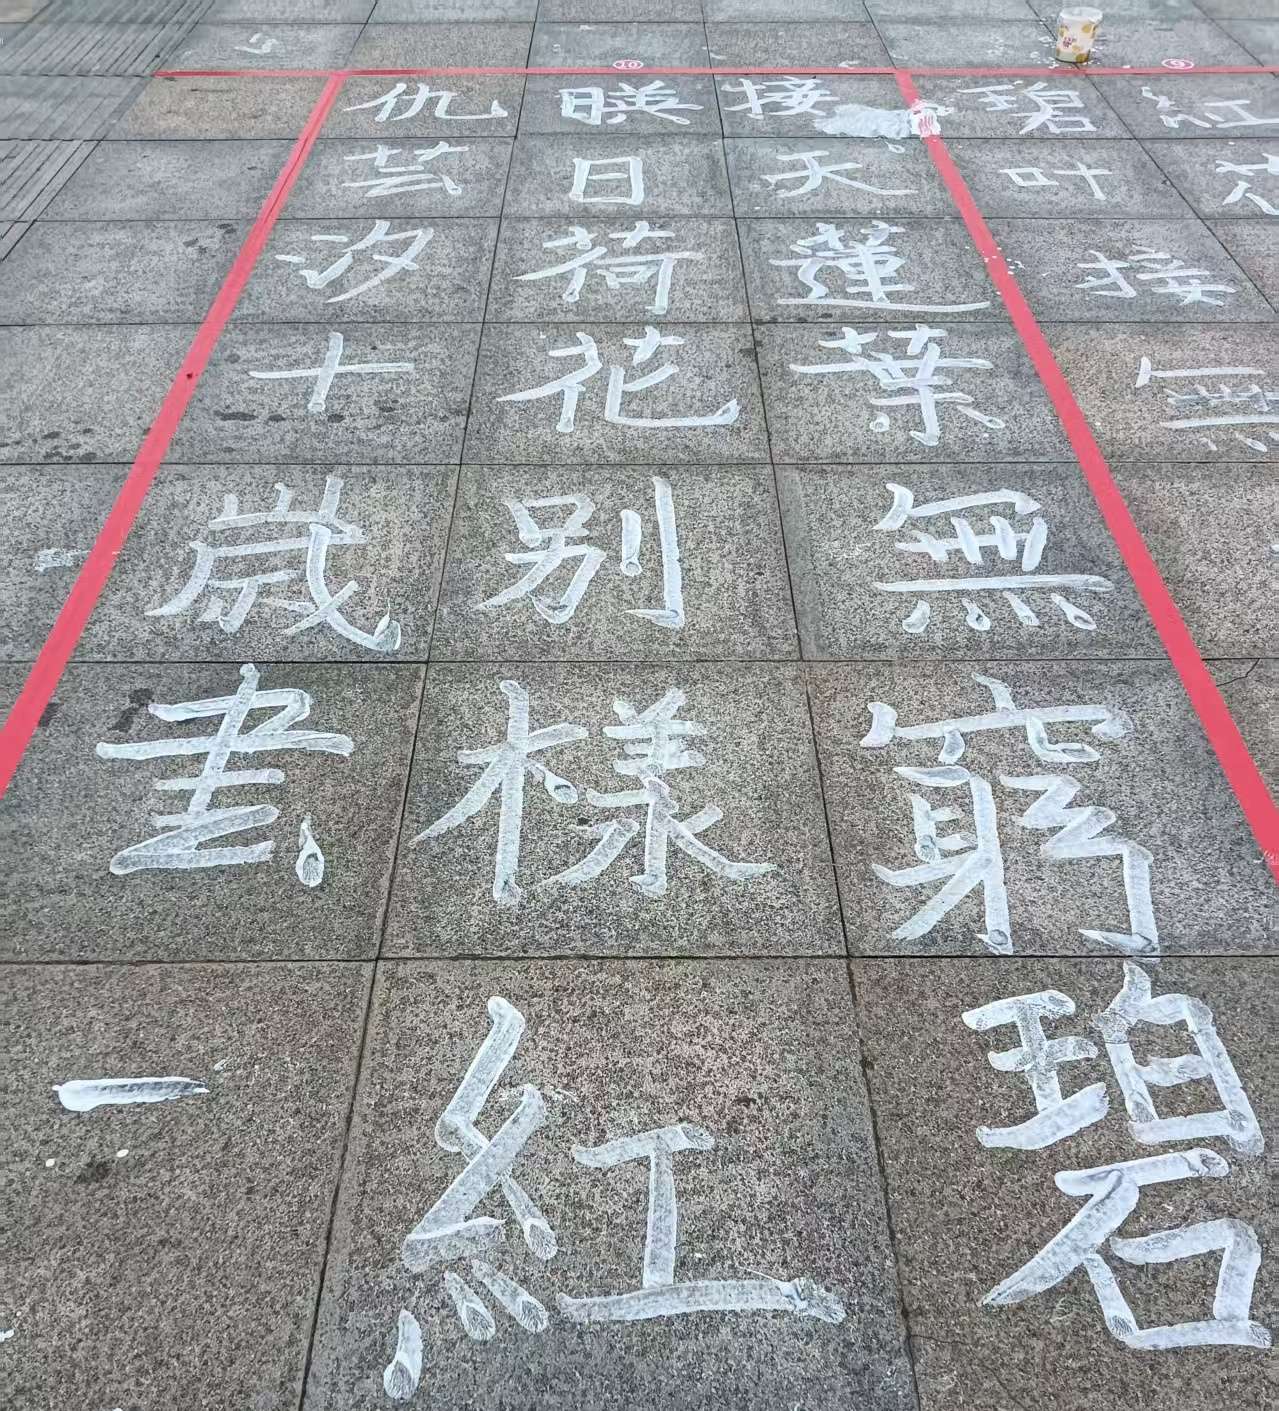 ⑨
紅
碧叶接無
⑩
接天蓮葉無窮碧
暎日荷花别樣紅
仇芸汐十歲書